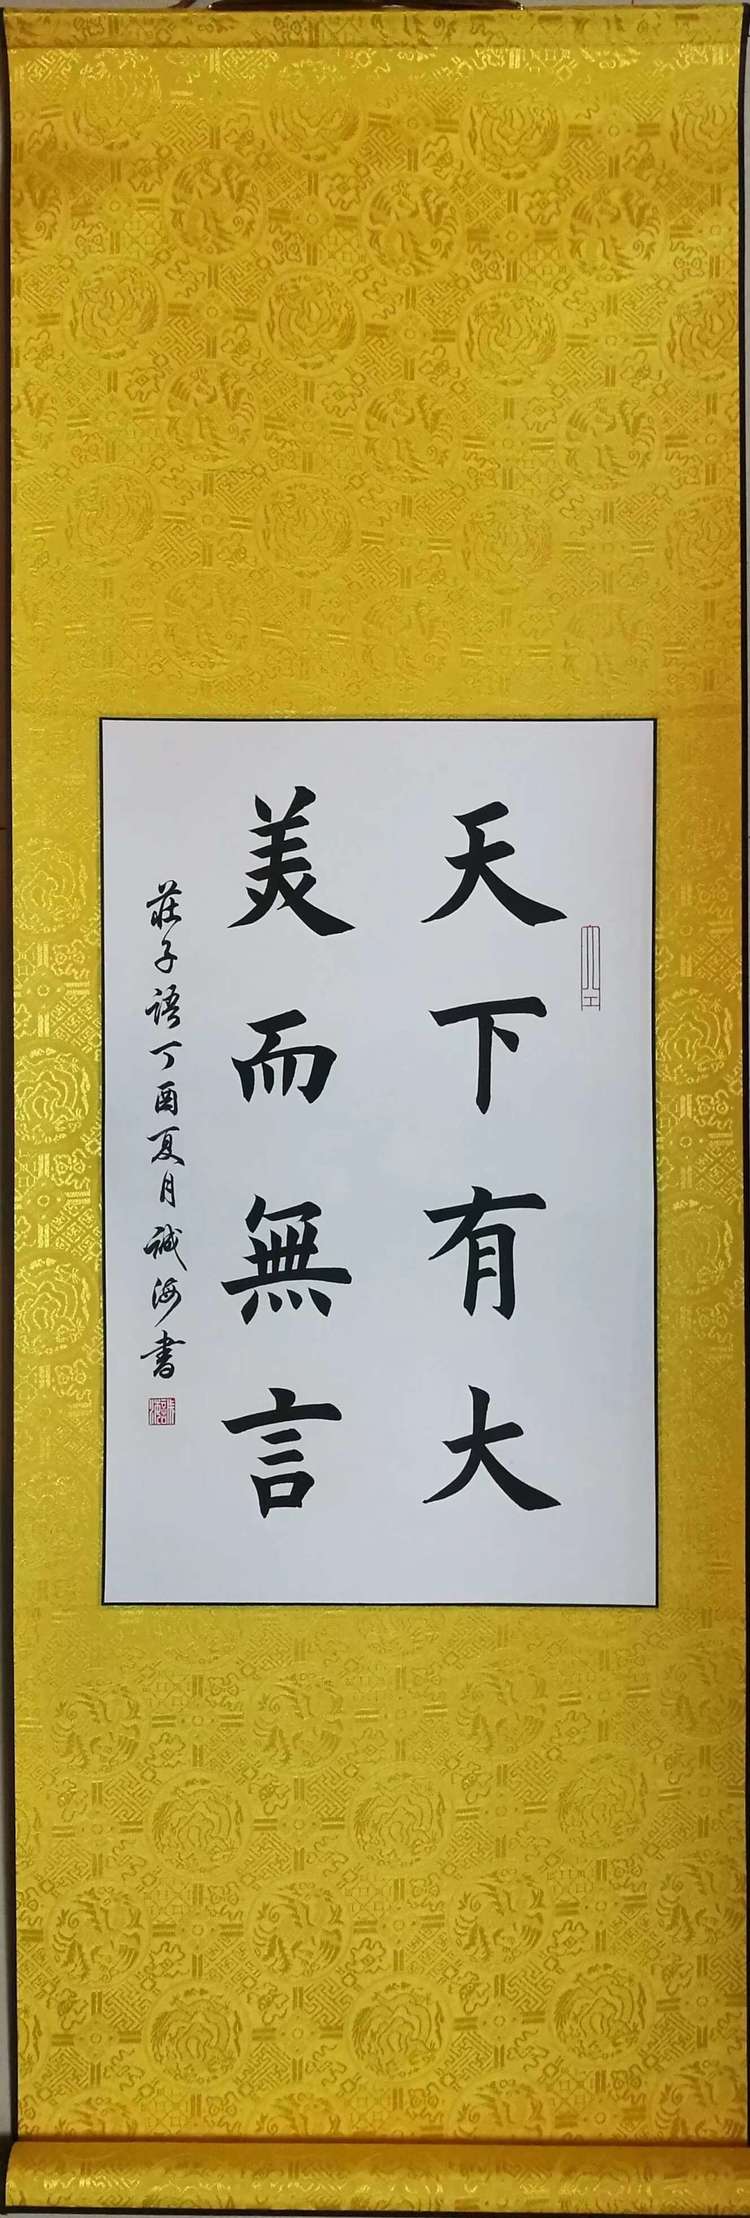 天下有大
美而無言
莊子語丁酉夏月誠海書